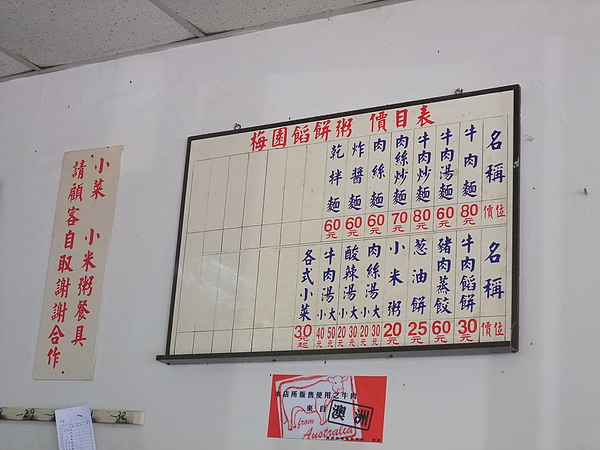 梅園餡餅粥 價目表
名稱 價位
牛肉麵 80元
牛肉湯麵 60元
牛肉炒麵 80元
肉絲炒麵 70元
肉絲麵 60元
炸醬麵 60元
乾拌麵 60元
名稱 價位
牛肉餡餅 30元
豬肉蒸餃 60元
葱油餅 25元
小米粥 20元
肉絲湯 大 30元 小 20元
酸辣湯 大 30元 小 20元
牛肉湯 大 50元 小 40元
各式小菜 30元起
小菜 小米粥餐具
請顧客自取謝謝合作
本店所販售使用之牛肉
來自 澳洲
from
Australia